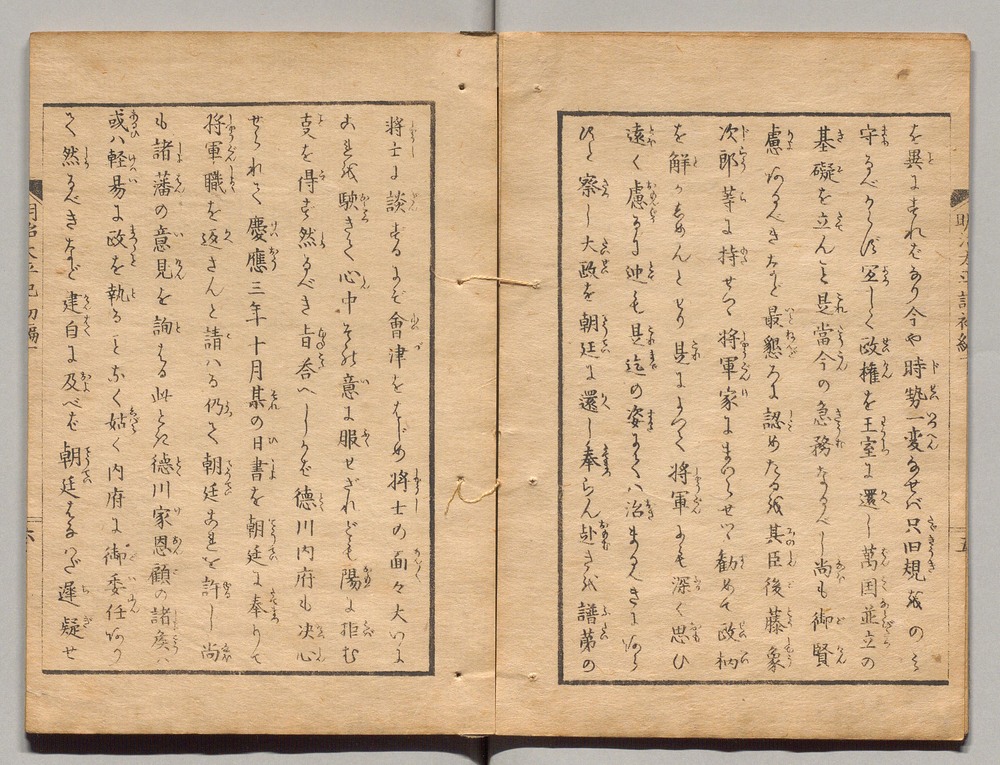 を異にすれどあり今や時勢一変なせバ只旧規越のミ
守るべからず宜しく政権を王室に還し萬国並立の
基礎を立んと是當今の急務なるべし尚も御賢
慮あるべきなど最懇ろに認めたる越其臣後藤象
次郎等に持せて将軍家にまいらせて勧めて政柄
を解かしめんとせり是によつて将軍にも深く思ひ
遠く慮るに迚も是迄の姿にてハ治まるべきにあら
ずと察し大政を朝廷に還し奉らん赴き越譜第の
将士に談ずるに會津をはじめ将士の面々大いに
驚きて心中その意に服せざれども陽に拒む
支を得ず然るべき旨答へしかば徳川内府も决心
せられて慶應三年十月某の日書を朝廷に奉りて
将軍職を返さんと請ハる仍て朝廷これを許し尚
も諸藩の意見を詢はる此とき徳川家恩顧の諸矦ハ
或ハ軽易に政を執ることなく姑く内府に御委任あり
て然るべきなど建白に及べば朝廷はなハだ遅疑せ
明治太平記初編
五
明治太平記初編
六